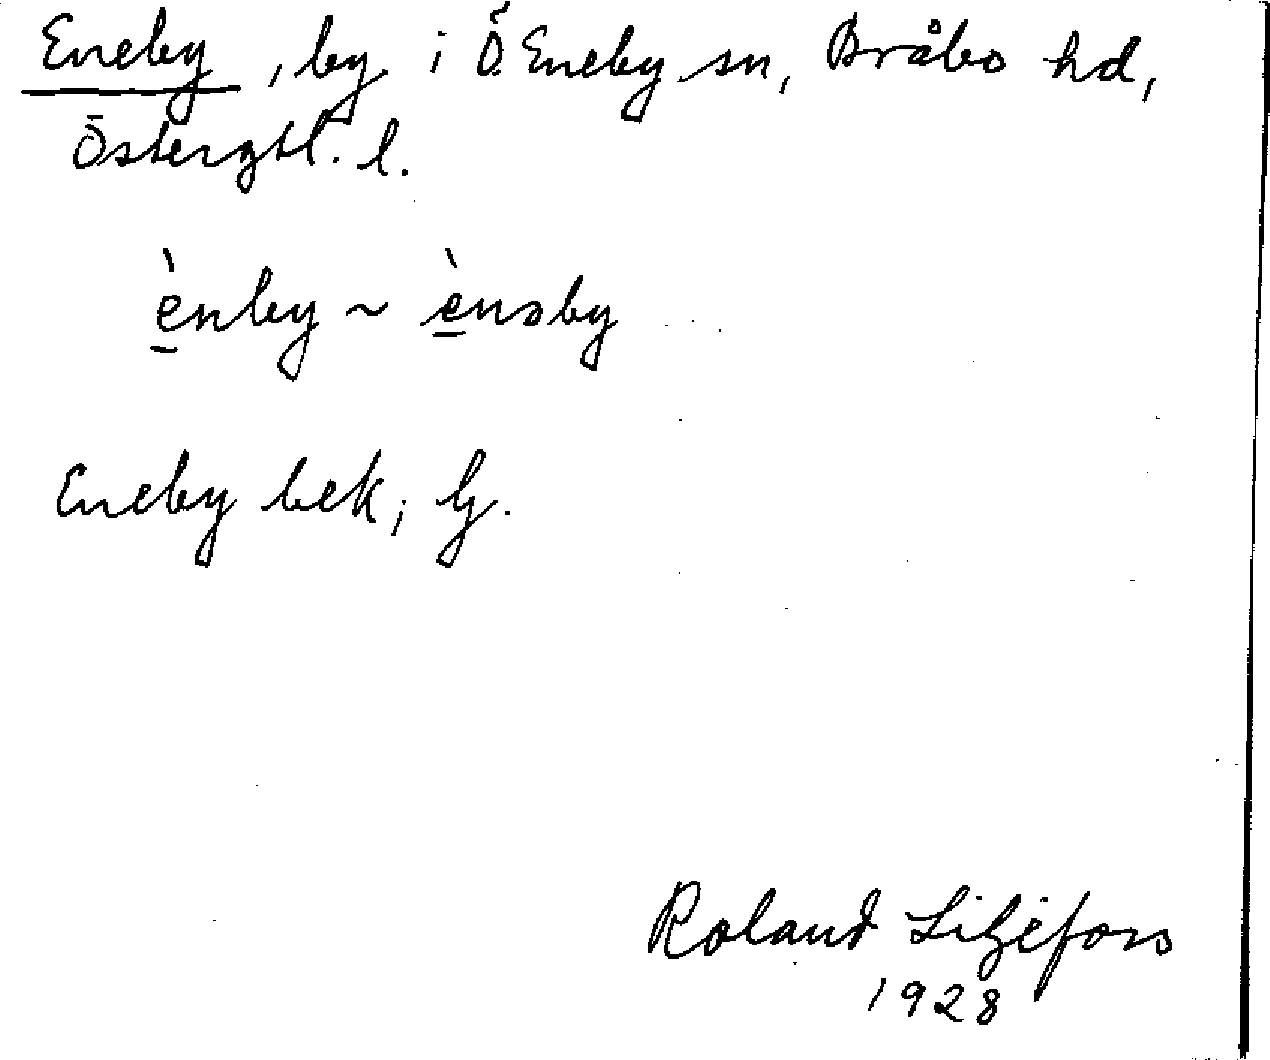 Eneby, by i Ö Eneby sn, Bråbo hd,
Östergtl. l.
è̱nby ~ è̱nəby
Eneby bek; G.
Roland Liljefors
1928